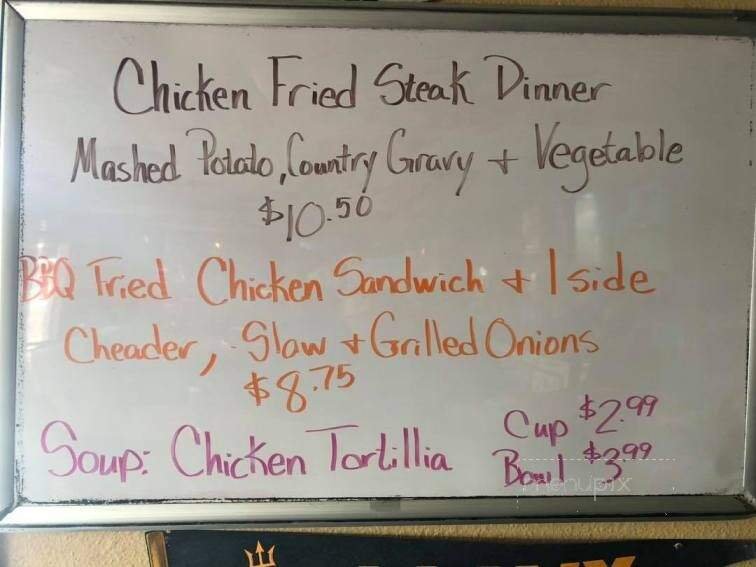 Chicken Fried Steak Dinner
Mashed Potato, Country Gravy + Vegetable
$10.50
BBQ Fried Chicken Sandwich + 1 side
Cheader, Slaw + Grilled Onions
$8.75
Soup: Chicken Tortillia
Cup $2.99
Bowl $3.99
menupix